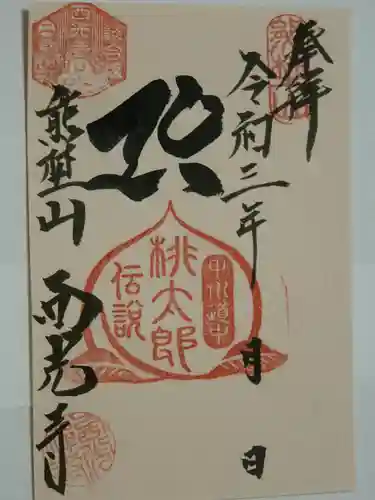 奉拝
令和三年 月 日
桃太郎
伝説
甲州道中
熊埜山 西光寺